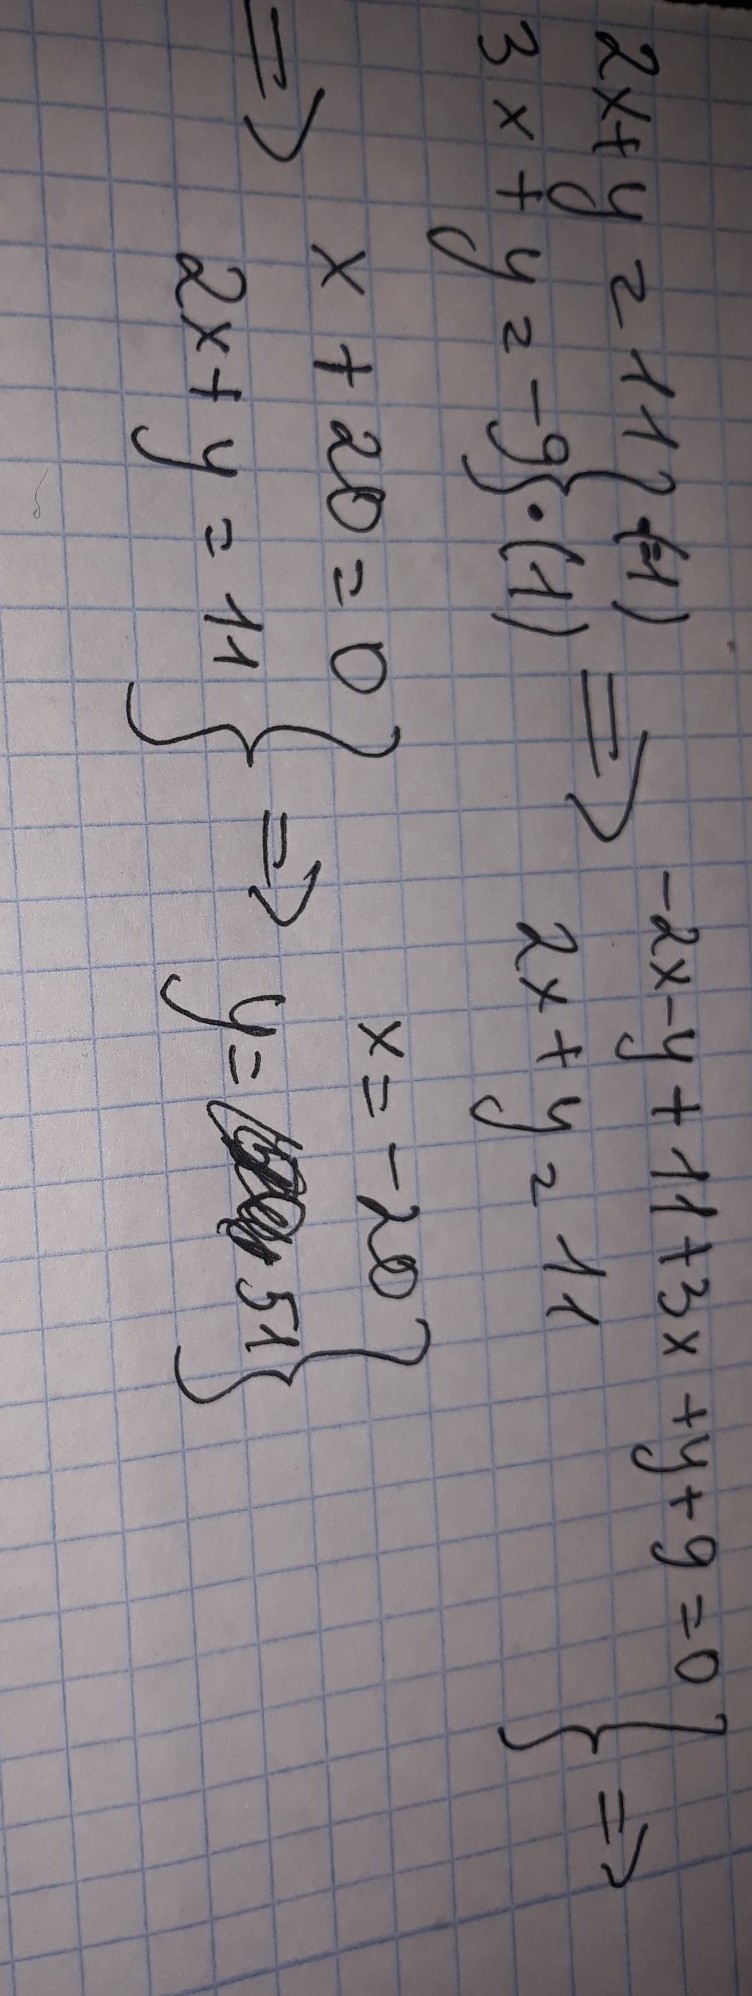 2x+y=11 } ·(-1)
3x+y=-9 } ·(1) ⇒
-2x-y+11+3x+y+9=0
2x+y=11 } ⇒
⇒ x+20=0
2x+y=11 } ⇒
x=-20
y=51 }